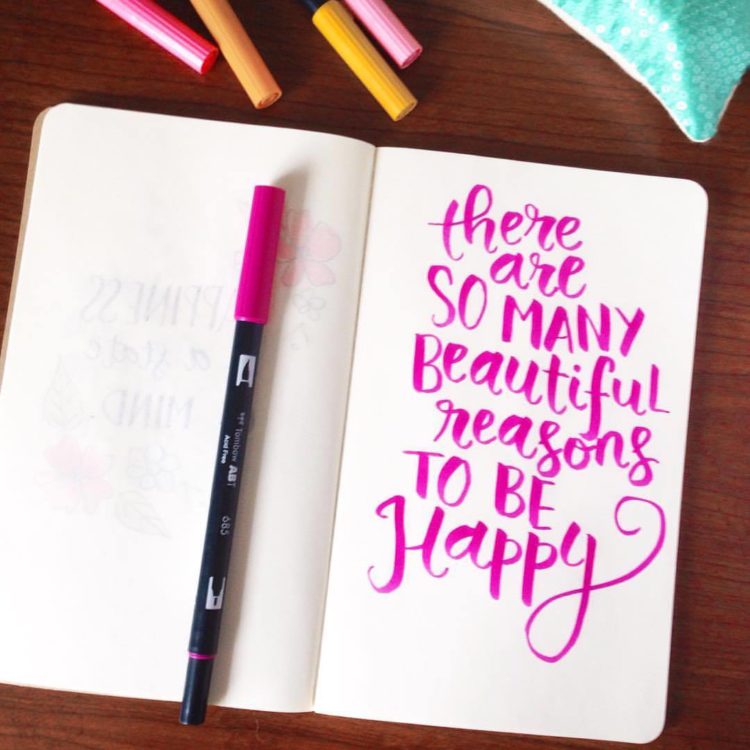 a state
MIND
Tombow ABT
Acid Free
685
there
are
SO MANY
Beautiful
reasons
TO BE
Happy